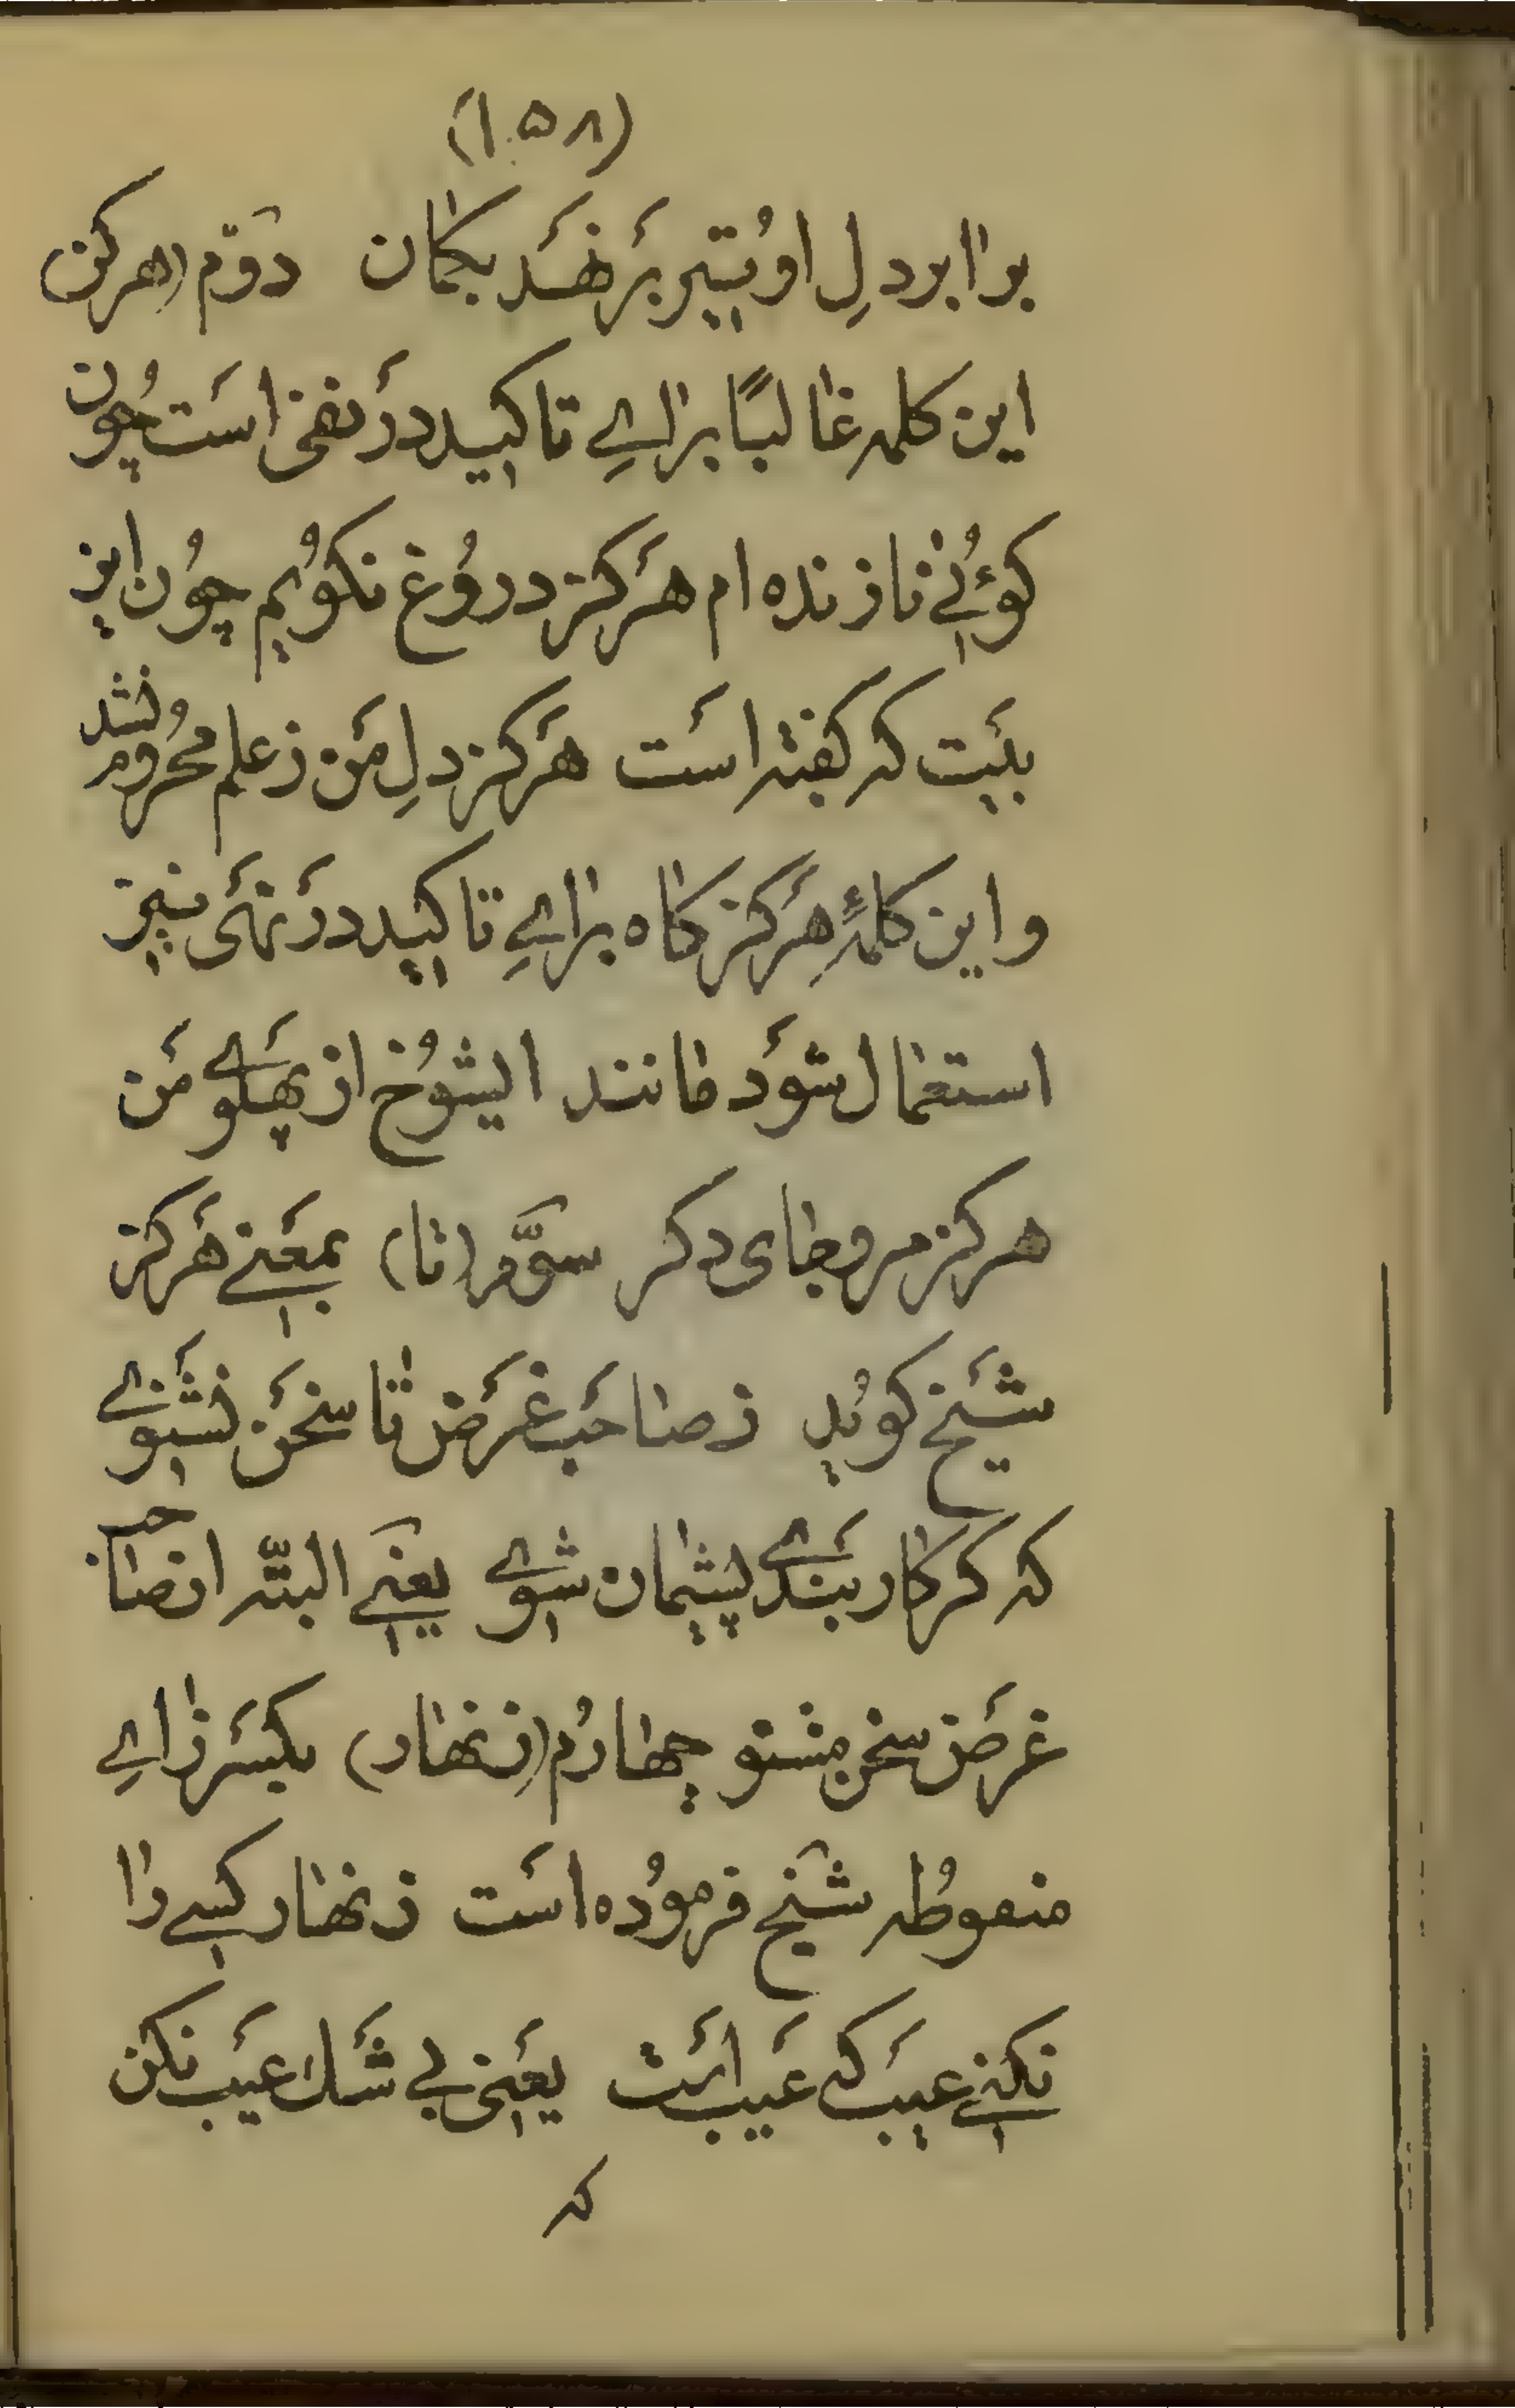 (١٥٨)
برابر دلِ او تیر بَر نهَد بکمان دوّم (هرکز)
این کلمه غالبًا برایِ تاکید دَر نفی است چُون
کوئی تا زنده ام هَرکز دروُغ نکوُیم چوُن این
بیَت که کفته است هَرکز دلِ مَن ز علم محرُوم نشد
و این کلمۀ هَرکز کاه برایِ تاکید دَر نَهی نیز
استعمال شوَد مانند ایشوُخ از پهلَوے مَن
هرکز مرو جای دکر سوَّم (تا) بمعَنے هَرکز
شیَخ کویُد ز صاحَب غَرَض تا سخَن نشنَوے
که کر کار بندَے پشیمان شوے یعَنے البتّه از صاحب
غرَض سخن مشنو چهارُم (زِنهار) بکسَر زایِ
منقوُطه شیَخ فرموُده است زنهار کسے را
نکنے عیَب که عَیب اَست یعَنی بی شَک عیَب نکن
که